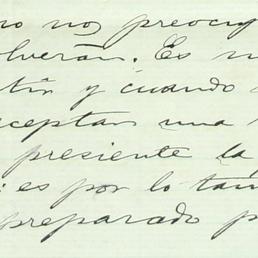 no nos preocup
olverán. Es m
tir y cuando
ceptan una
presiente la
es por lo tan
preparado p